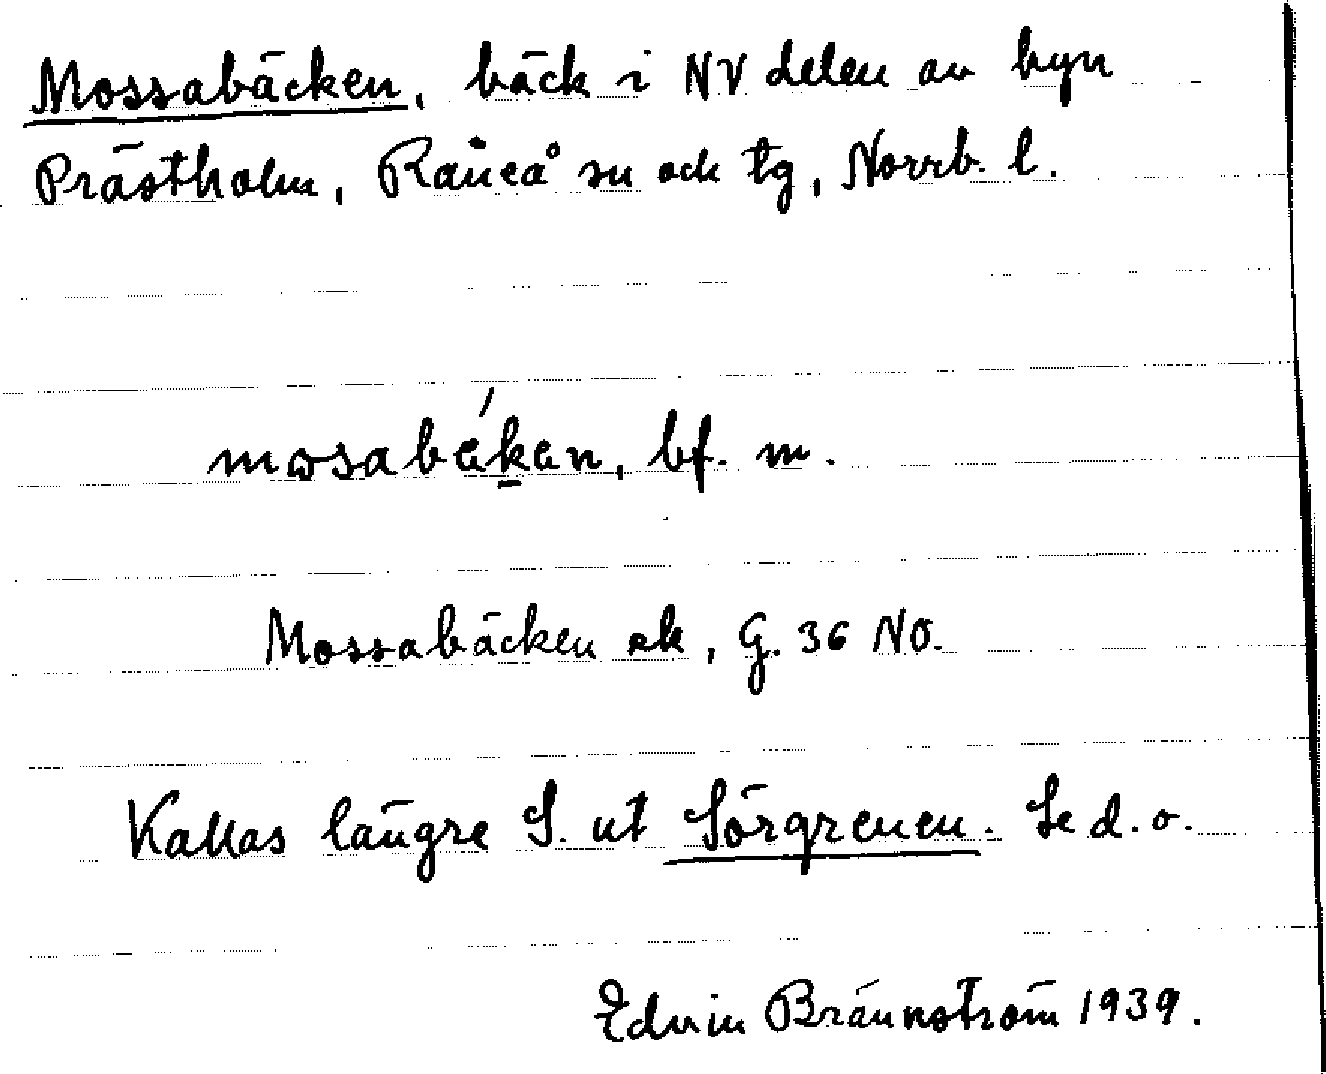 Mossabäcken, bäck i NV delen av byn
Prästholm, Råneå sn och tg, Norrb. l.
mosabäkän, bf. m.
Mossabäcken ek, G. 36 NO.
Kallas längre S. ut Sörgrenen. Se d. o.
Edvin Brännström 1939.